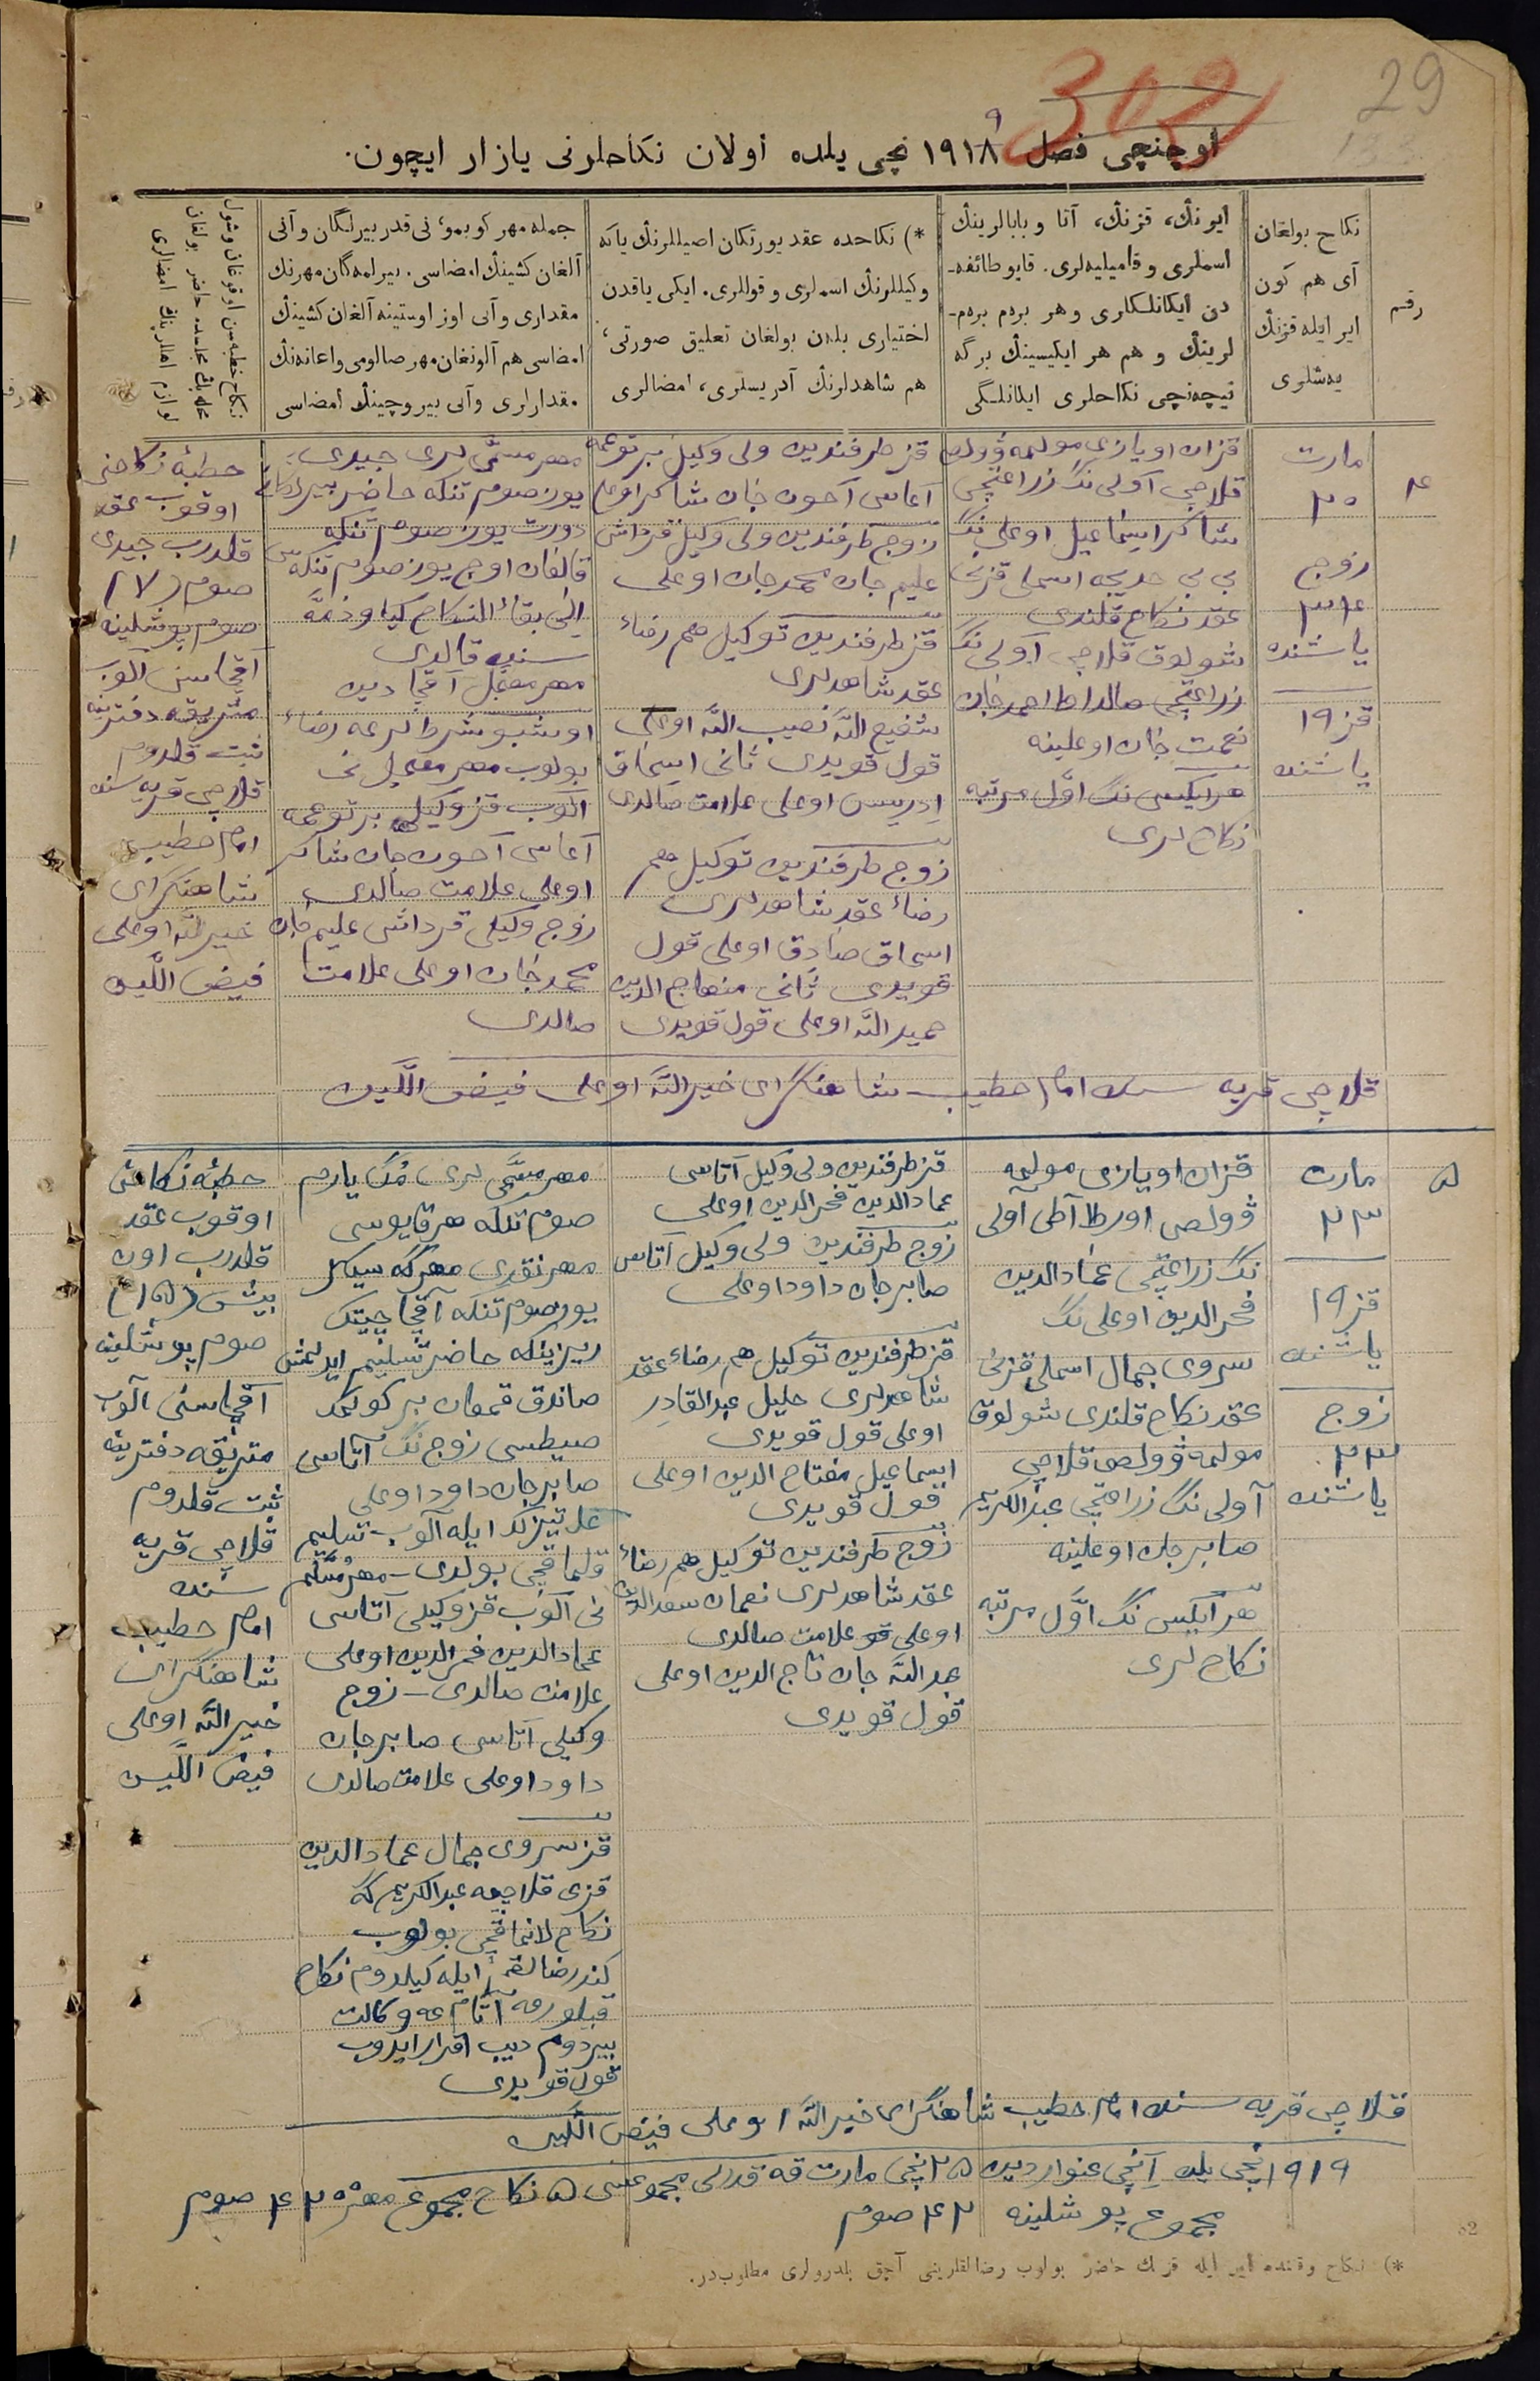 29
302
9
اوچنچی فصل ۱۹۱۸ نچی یلده اولان نکاحلرنی یازار ایچون.
رقم
نکاح بولغان
آی هم کون
ایر ایله قزنڭ
یه‌شلری
ایرنڭ، قزنڭ، آتا و بابالرینڭ
اسملری و فامیلیه‌لری. قایو طائفه‌-
دن ایکانلکلری وهر بره‌م بره‌م-
لرینڭ و هم هر ایکیسینڭ برگه
نیچه‌نچی نکاحلری ایکانلگی
*) نکاحده عقد یورتکان اصیللرنڭ یاکه
وکیللرنڭ اسملری و قوللری. ایکی یاقدن
اختیاری بلەن بولغان تعلیق صورتی،
هم شاهدلرنڭ آدریسلری، امضالری
جمله مهر کوبمو؛ نی قدر بیرلگان وآنی
آلغان کشینڭ امضاسی. بیرلمه‌گان مهرنڭ
مقداری وآنی اوز اوستینه آلغان کشینڭ
امضاسی هم آلونغان مهر صالومی واعانه‌نڭ
مقدارلری وآنی بیروچینڭ امضاسی
نکاح خطبه‌سن اوقوغان وشول
مجلسده حاضر بولغان
لوازم اهللرینڭ امضالری
۴
مارت
۲۰
زوج
۳۴
یاشنده
قز ۱۹
یاشنده
قزان اویازی مولمه ۋولص
قلاچی آولی نڭ زراعتچی
شاکر اسماعیل اوغلی نڭ
بی بی خدیجه اسملی قزنی
عقد نکاح قلندی
شولوق قلاچی آولی نڭ
زراعتچی صالداط احمدجان
نعمت جان اوغلینه
هر ایکیسی نڭ اوّل مرتبه
نکاح لری
قز طرفندین ولی وکیل برتوغمه
آغاسی آخون جان شاکر اوغلی
زوج طرفندین ولی وکیل قرداش
علیم جان محمدجان اوغلی
قز طرفندین توکیل هم رضاء
عقد شاهدلری
شفیع اللّه نصیب اللّه اوغلی
قول قویدی ثانی اسحاق
ادریس اوغلی علامت صالدی
زوج طرفندین توکیل هم
رضاء عقد شاهدلری
اسحاق صادق اوغلی قول
قویدی ثانی منهاج الدین
حمید اللّه اوغلی قول قویدی
مهر مسمّی لری جیدی
یوز صوم تنکه حاضر بیرلکان
دورت یوز صوم تنکه
قالغان اوچ یوز صوم تنکه‌سی
الی بقاء النکاح کیاو ذمّه
سنده قالدی
مهر معجّل آقچا دین
اوشبو شرطلرغه رضاء
بولوب مهر معجل نی
آلوب قز وکیلی برتوغمه
آغاسی آخون جان شاکر
اوغلی علامت صالدی
زوج وکیلی قرداش علیم جان
محمدجان اوغلی علامت
صالدی
خطبهٔ نکاحنی
اوقوب عقد
قلدرب جیدی
صوم (۷)
صوم پوشلینه
آقچاسن آلوب
متریقه دفترینه
ثبت قلدوم
قلاچی قریه سنده
امام خطیب
شاهنکرای
خیر اللّه اوغلی
فیض اللّین
قلاچی قریه سنده امام خطیب شاهنکرای خیر اللّه اوغلی فیض اللّین
۵
مارت
۲۳
قز ۱۹
یاشنده
زوج
۲۳
یاشنده
قزان اویازی مولیمه
ۋولصی اورطا آطی آولی
نڭ زراعتچی عماد الدین
فخر الدین اوغلی نڭ
سروی جمال اسملی قزنی
عقد نکاح قلندی شولوق
مولمه ۋولص قلاچی
آولی نڭ زراعتچی عبدالکریم
صابرجان اوغلینه
هر ایکیسی نڭ اوّل مرتبه
نکاح لری
قز طرفندین ولی وکیل آتاسی
عماد الدین فخر الدین اوغلی
زوج طرفندین ولی وکیل آتاسی
صابرجان داود اوغلی
قز طرفندین توکیل هم رضاء عقد
شاهدلری خلیل عبد القادر
اوغلی قول قویدی
اسماعیل مفتاح الدین اوغلی
قول قویدی
زوج طرفندین توکیل هم رضاء
عقد شاهدلری نعمان سعد الدین
اوغلی علامت صالدی
عبد اللّه جان تاج الدین اوغلی
قول قویدی
مهر مسمّی لری مڭ یارم
صوم تنکه هر قایوسی
مهر نقدی مهرگه سیکز
یوز صوم تنکه آقچا چیتک
ریزینکه حاضر تسلیم ایدلمش
صاندق قمغان بر کولمک
صیطسی زوج نڭ آتاسی
صابرجان داود اوغلی
آلوب تسلیم
قلماقچی بولدی مهر مسلّم
نی آلوب قز وکیلی آتاسی
عماد الدین فخر الدین اوغلی
علامت صالدی زوج
وکیلی آتاسی صابرجان
داود اوغلی علامت صالدی
قز سروی جمال عماد الدین
قزی قلاچیغه عبدالکریم گه
نکاح لانماقچی بولوب
کندی رضالقم ایله کیلدوم نکاح
قیلورغه آتام غه وکالت
بیردوم دیب اقرار ایدوب
قول قویدی
خطبهٔ نکاحنی
اوقوب عقد
قلدرب اون
بیش (۱۵)
صوم پوشلینه
آقچاسنی آلوب
متریقه دفترینه
ثبت قلدوم
قلاچی قریه
سنده
امام خطیب
شاهنکرای
خیر اللّه اوغلی
فیض اللّین
قلاچی قریه سنده امام خطیب شاهنکرای خیر اللّه اوغلی فیض اللّین
۱۹۱۹ نچی یلده ۱ نچی غنواردین ۲۵ نچی مارت قه قدرلی مجموعسی ۵ نکاح مجموع مهر صوم
مجموع پوشلینه ۴۲ صوم
*) نکاح وقتنده ایر ایله قزنڭ حاضر بولوب رضالقلرینی آچق بلدرولری مطلوبدر.